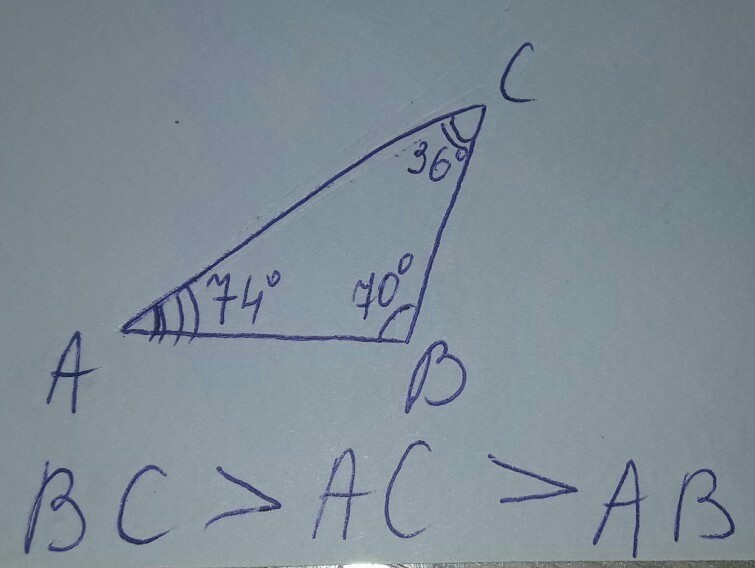 C
36°
74° 70°
A
B
BC > AC > AB